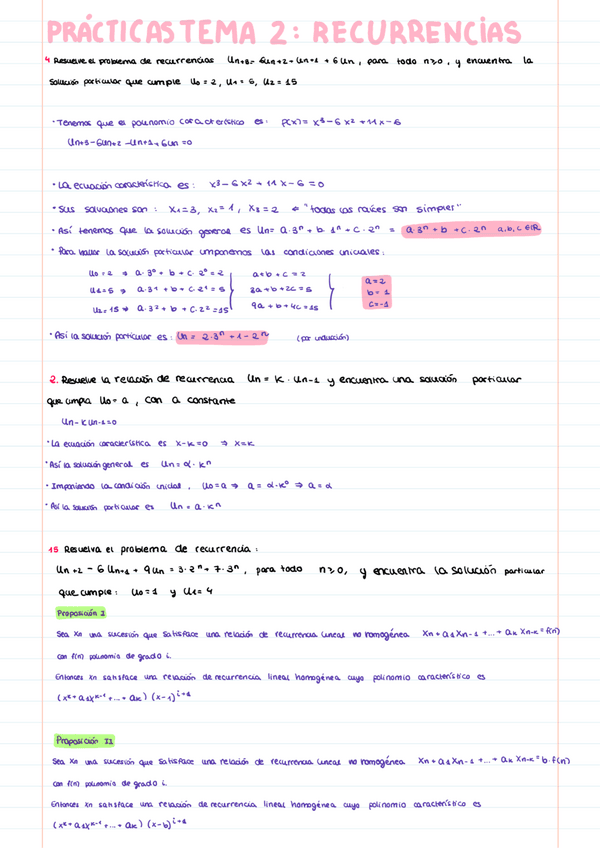 PRÁCTICAS TEMA 2: RECURRENCIAS
4 Resuelve el problema de recurrencias Un+3 = 6Un+2 - Un+1 + 6Un, para todo n≥0, y encuentra la
solución particular que cumple U0 = 2, U1 = 5, U2 = 15
· Tenemos que el polinomio característico es: P(x) = x³ - 6x² + 11x - 6
Un+3 - 6Un+2 - Un+1 + 6Un = 0
· La ecuación característica es: x³ - 6x² + 11x - 6 = 0
· Sus soluciones son: x1 = 3, x2 = 1, x3 = 2 "todas las raíces son simples"
· Así tenemos que la solución general es Un = a·3ⁿ + b·1ⁿ + c·2ⁿ = a·3ⁿ + b + c·2ⁿ a,b,c ∈ℝ
· Para hallar la solución particular imponemos las condiciones iniciales:
U0 = 2 ⇒ a·3⁰ + b + c·2⁰ = 2 a+b+c = 2
U1 = 5 ⇒ a·3¹ + b + c·2¹ = 5 3a+b+2c = 5
U2 = 15 ⇒ a·3² + b + c·2² = 15 9a+b+4c = 15
a = 2
b = 1
c = -1
· Así la solución particular es: Un = 2·3ⁿ + 1 - 2ⁿ (por inducción)
2. Resuelve la relación de recurrencia Un = K · Un-1 y encuentra una solución particular
que cumpla U0 = a, con a constante
Un - KUn-1 = 0
· La ecuación característica es x - K = 0 ⇒ x = K
· Así la solución general es Un = α·Kⁿ
· Imponiendo la condición inicial, U0 = a ⇒ a = α·K⁰ ⇒ a = α
· Así la solución particular es Un = a·Kⁿ
15 Resuelva el problema de recurrencia:
Un+2 - 6Un+1 + 9Un = 3·2ⁿ + 7·3ⁿ, para todo n≥0, y encuentra la solución particular
que cumple: U0 = 1 y U1 = 4
Proposición I
Sea Xn una sucesión que satisface una relación de recurrencia lineal no homogénea Xn + a1Xn-1 + ... + akXn-k = f(n)
con f(n) polinomio de grado i.
Entonces Xn satisface una relación de recurrencia lineal homogénea cuyo polinomio característico es
(xᵏ + a1xᵏ⁻¹ + ... + ak) (x-1)ⁱ⁺¹
Proposición II
Sea Xn una sucesión que satisface una relación de recurrencia lineal no homogénea Xn + a1Xn-1 + ... + akXn-k = b·f(n)
con f(n) polinomio de grado i.
Entonces Xn satisface una relación de recurrencia lineal homogénea cuyo polinomio característico es
(xᵏ + a1xᵏ⁻¹ + ... + ak) (x-b)ⁱ⁺¹